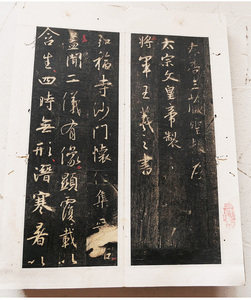 大唐三藏聖教序
太宗文皇帝製
將軍王羲之書
弘福寺沙門懷仁集
蓋聞二儀有像顯覆載以
含生四時無形潛寒暑以